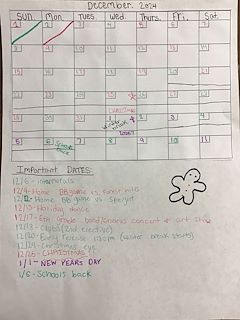 December 2024
Sun. Mon. Tues Wed. Thurs. Fri. Sat.
1 2 3 4 5 6 7
8 9 10 11 12 13 14
15 16 17 18 19 20 21
22 23 24 25 26 27 28
29 30 31 1 2 3 4
5 6 7 8 9 10 11
Important Dates:
12/6 - internerals
12/9 - Home BB game vs Forest Hills
12/12 - Home BB game vs Speight
12/13 - Holiday dance
12/17 - 6th grade band/chorus concert & art show
12/18 - Clubs (2nd elective)
12/20 - Early release 1130pm (winter break starts)
12/24 - Christmas eve
12/25 - CHRISTMAS
1/1 - NEW YEARS DAY
1/6 - Schools back